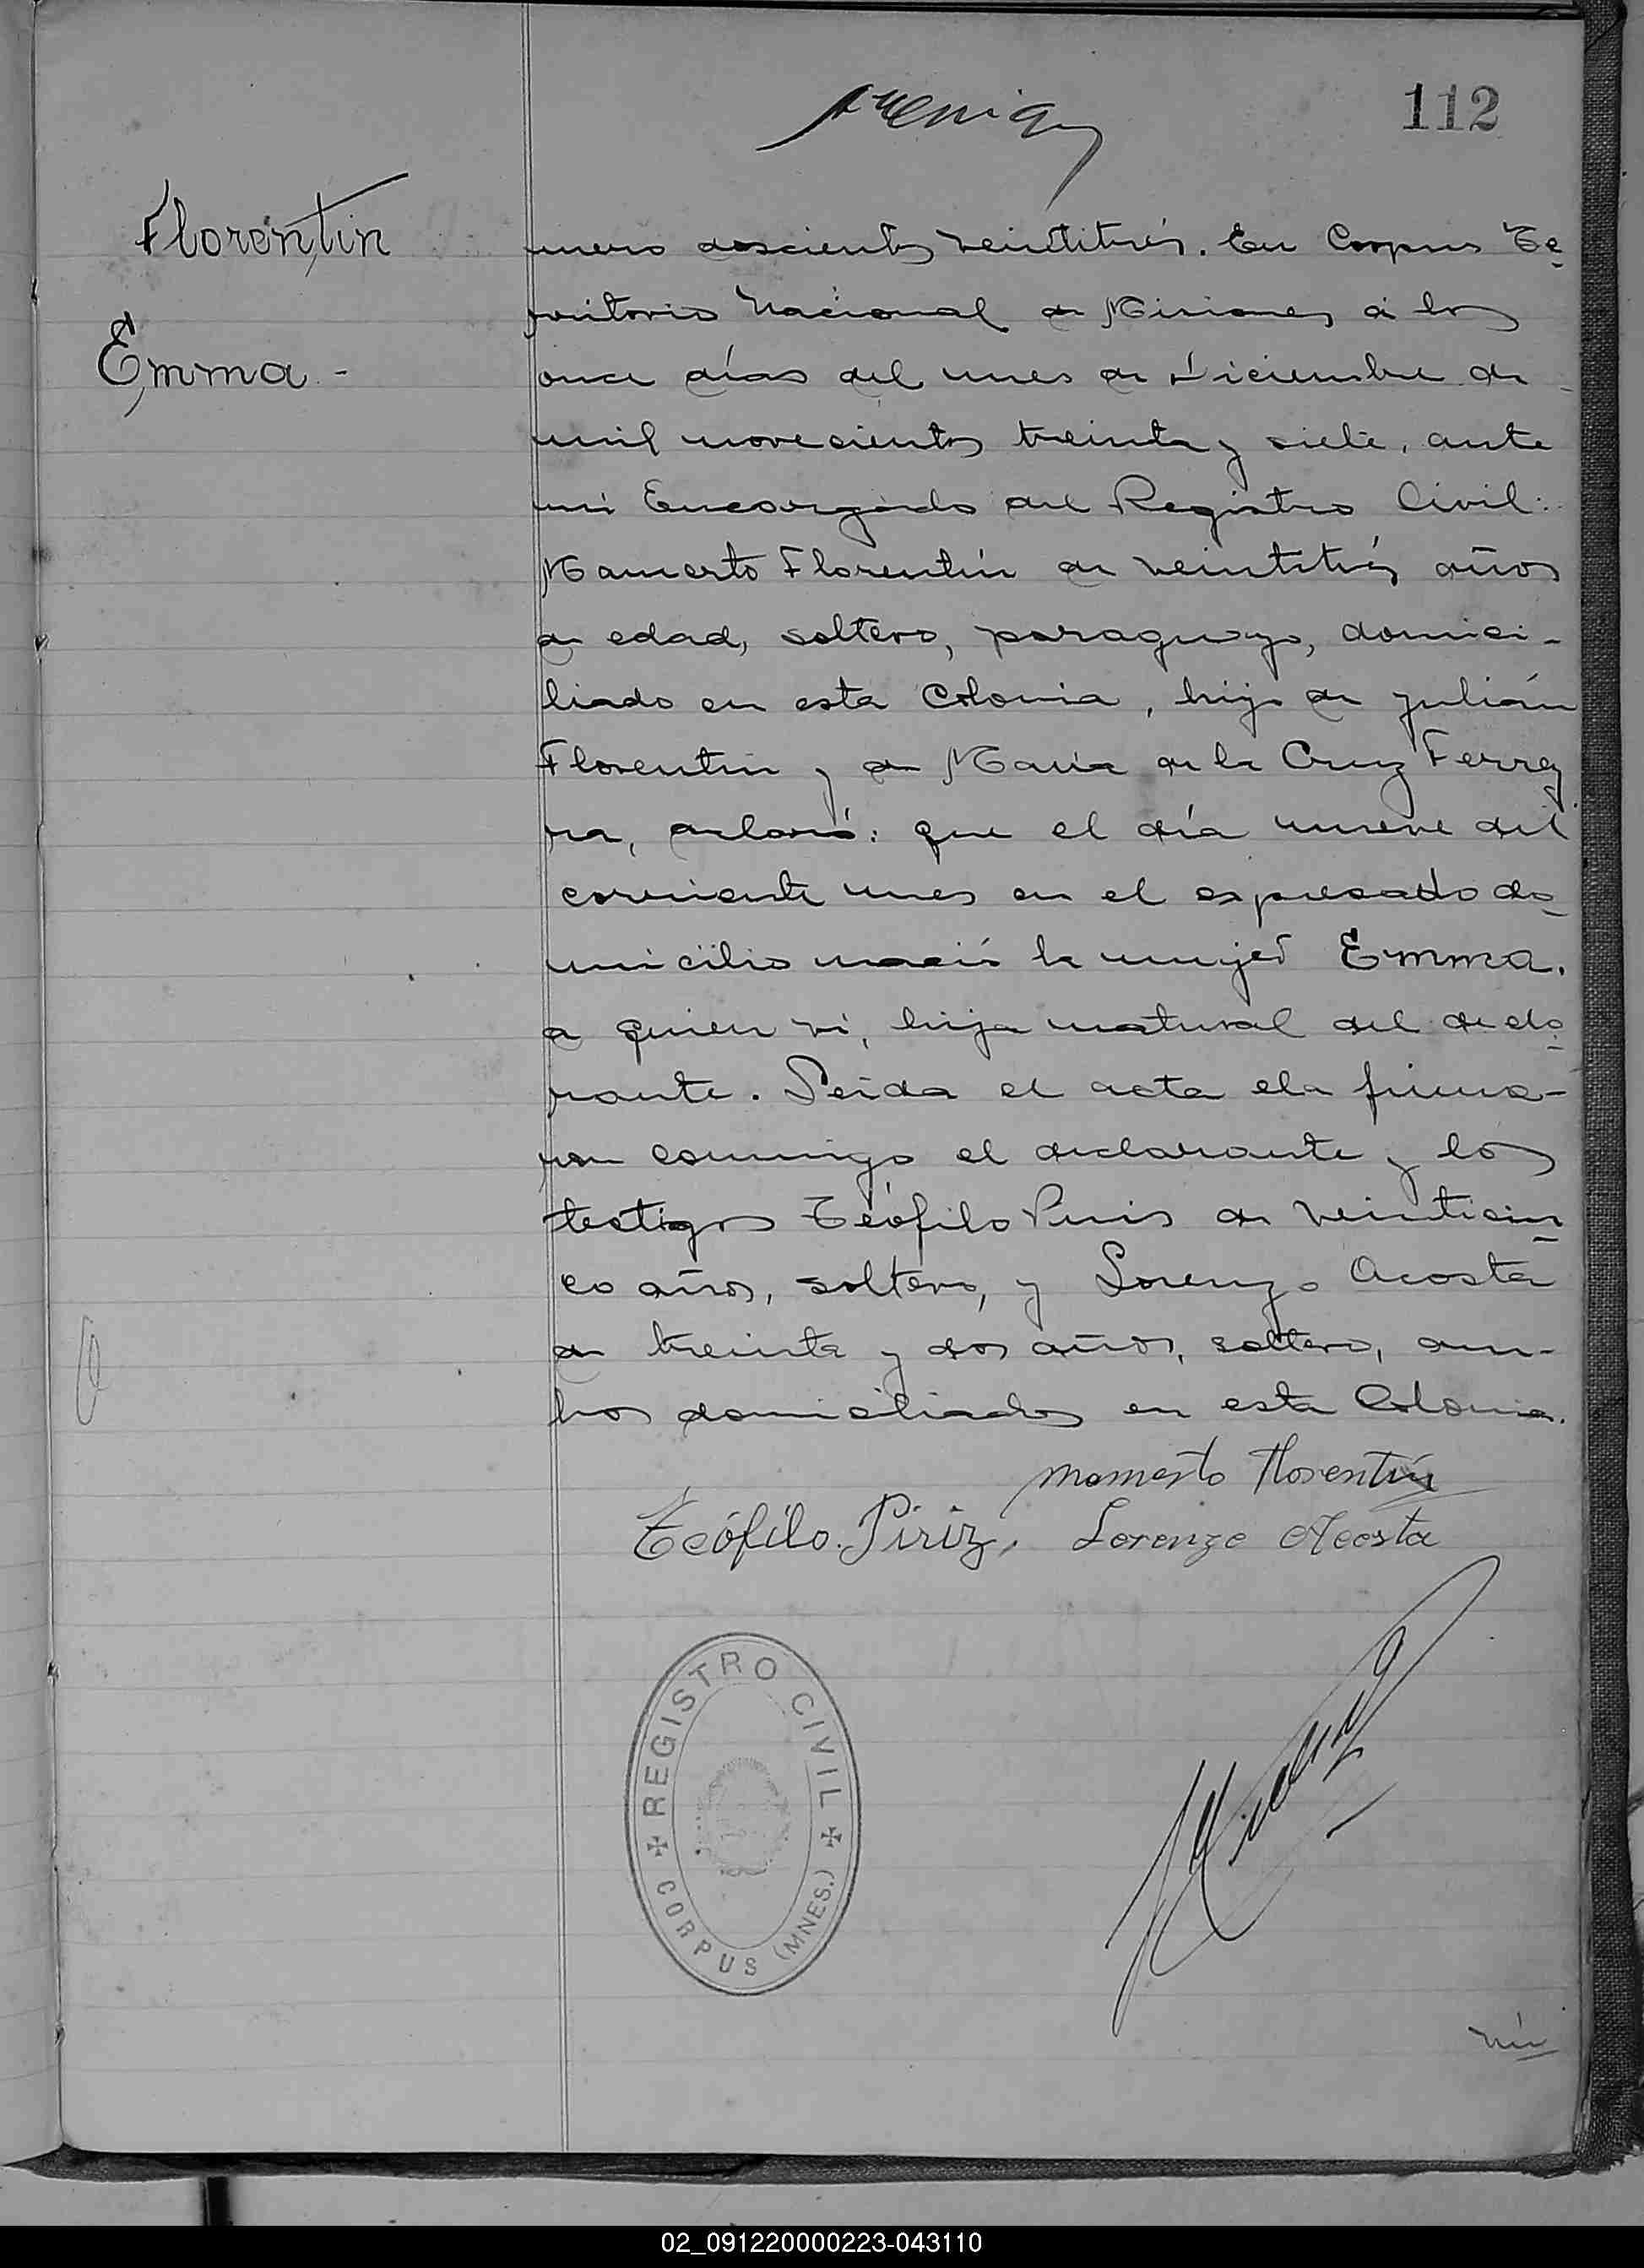 112
Florentin
Emma.-
mero doscientos veintitrés. En Corpus Te
rritorio Nacional de Misiones a los
once días del mes de Diciembre de
mil novecientos treinta y siete, ante
mí Encargado del Registro Civil:
Mamerto Florentín de veintitrés años
de edad, soltero, paraguayo, domici-
liado en esta Colonia, hijo de Julián
Florentin y de María de la Cruz Ferrey
ra, declaró: que el día nueve del
corriente mes en el expresado do
micilio nació la mujer Emma.
a quien vi, hija natural del decla
rante. Leída el acta la firma-
ron conmigo el declarante y los
testigos Teófilo Piris de veinticin
co años, soltero, y Lorenzo Acosta
de treinta y dos años, soltero, am-
bos domiciliados en esta Colonia.
Mamerto Florentín
Teófilo. Píriz, Lorenzo Acosta
REGISTRO CIVIL
CORPUS (MNES.)
nú
02_091220000223-043110